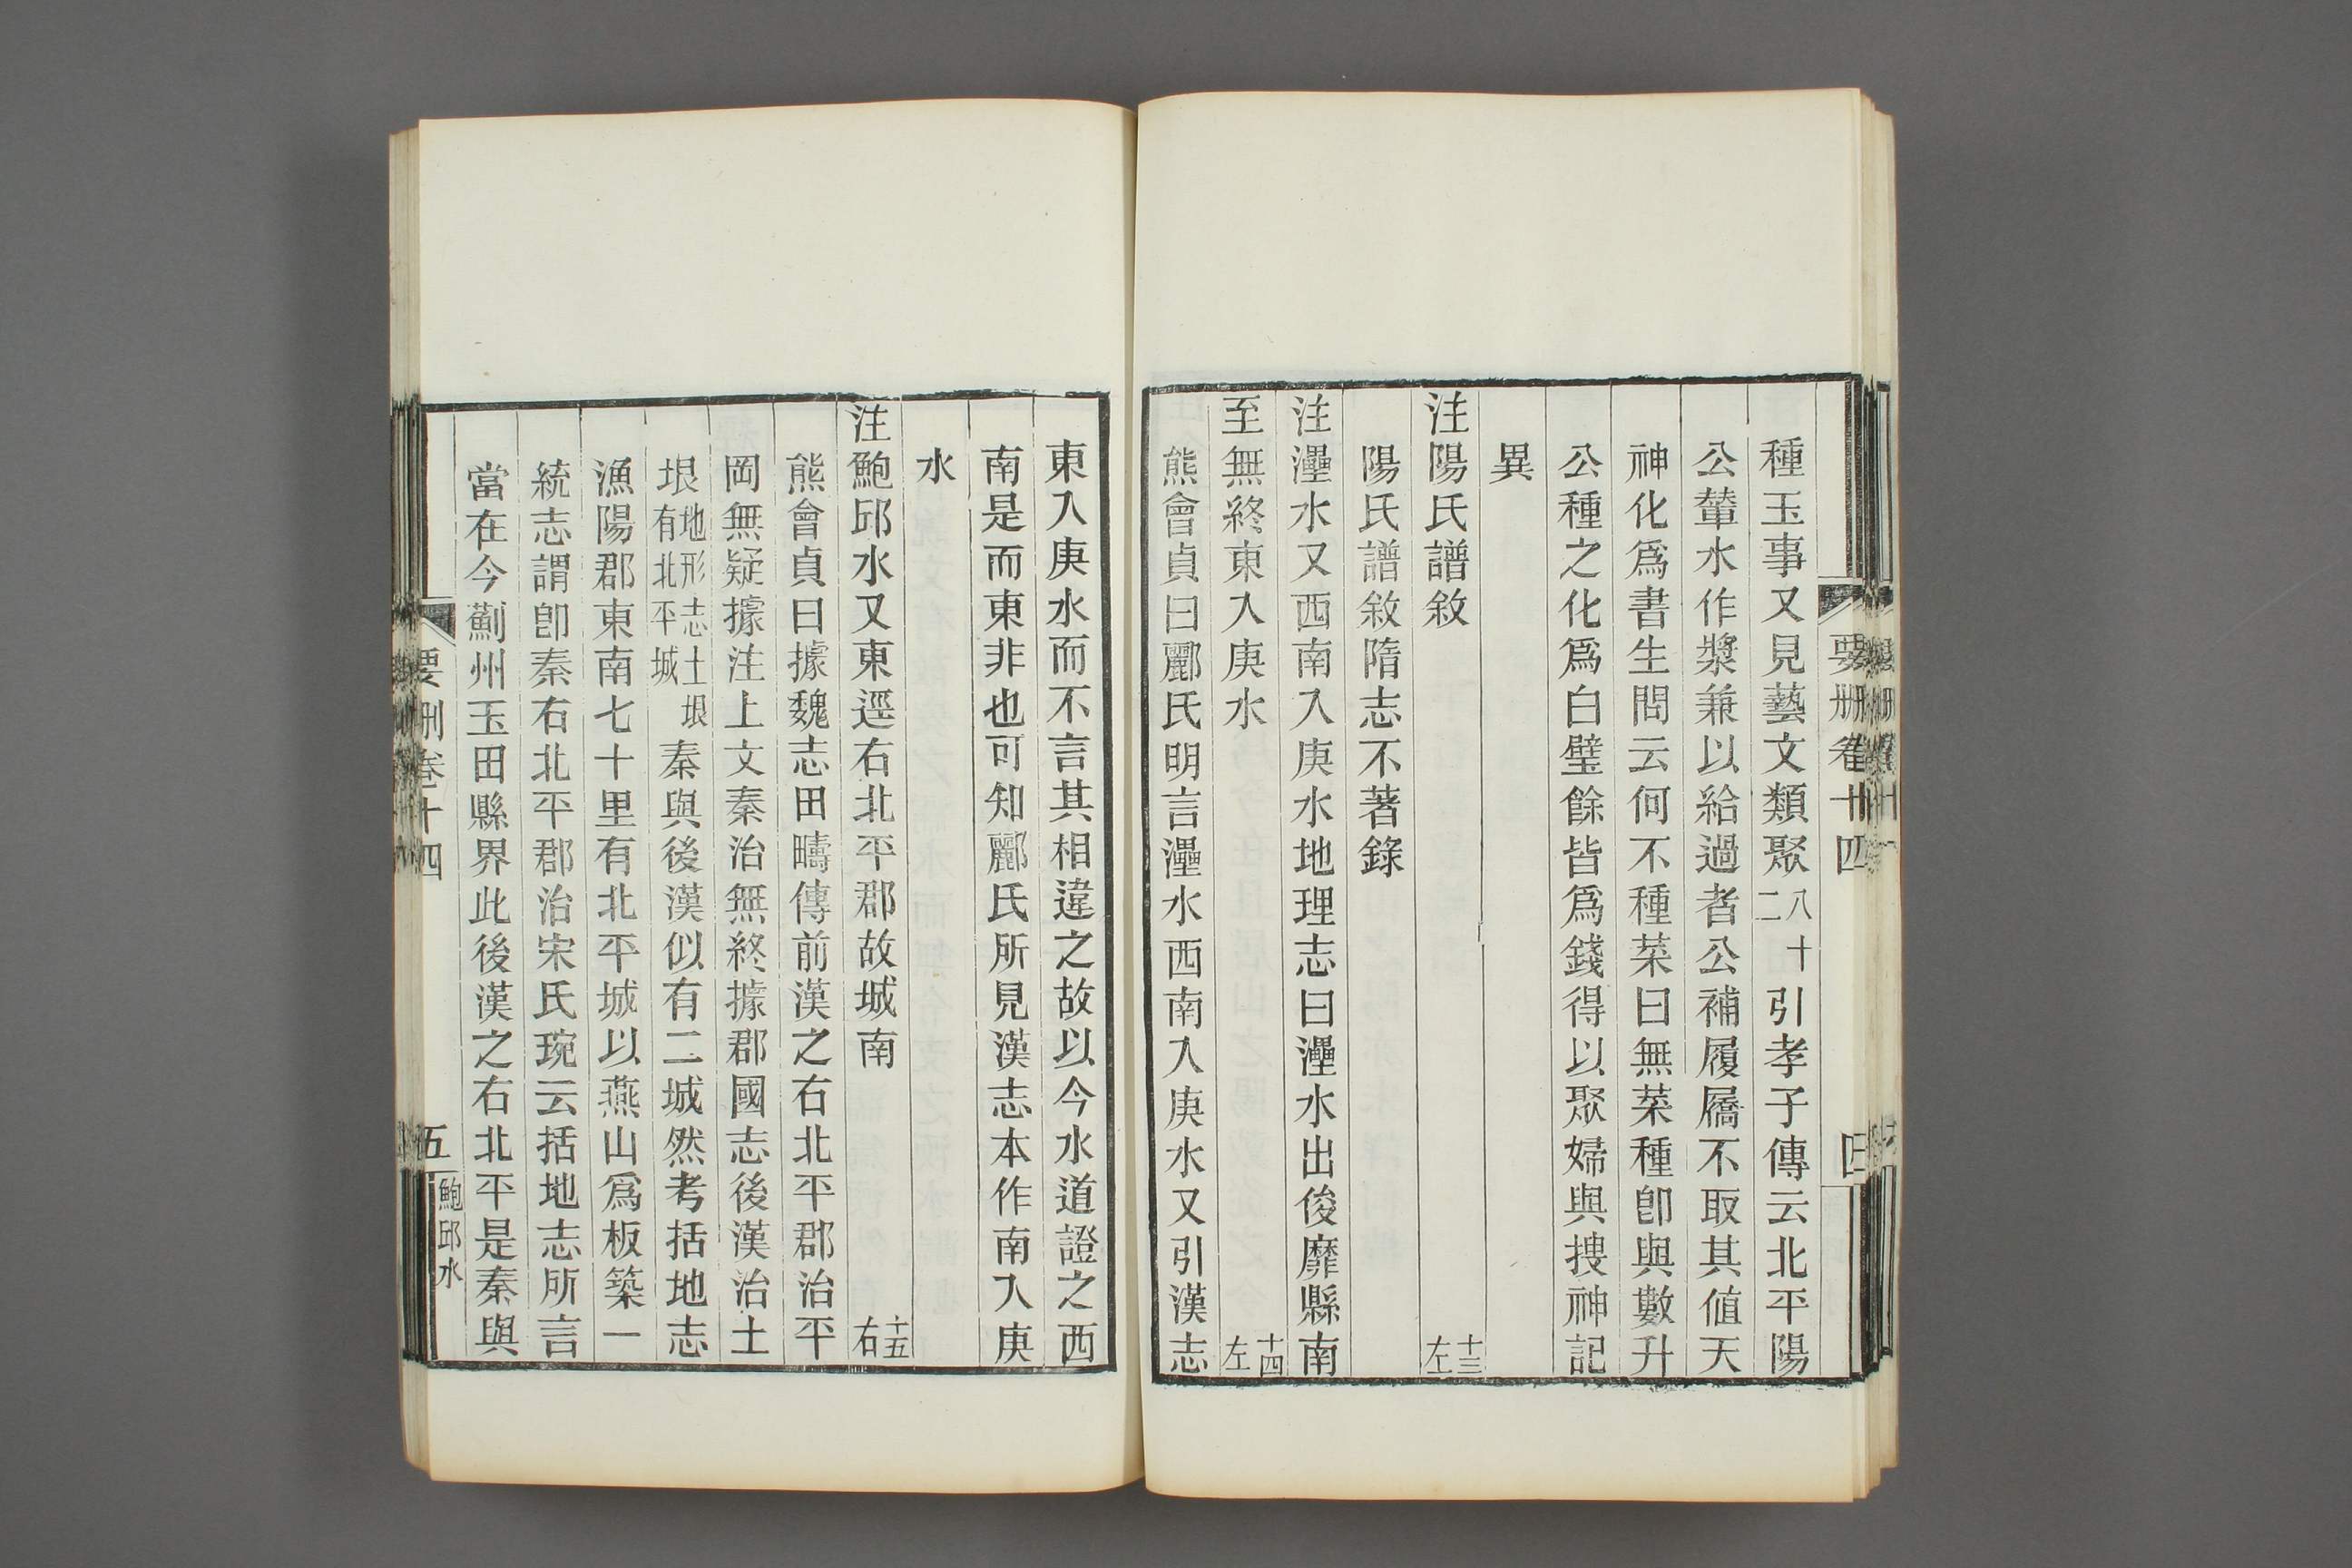 要刪卷十四
四
種玉事又見藝文類聚八十二引孝子傳云北平陽
公輦水作漿兼以給過者公補履屩不取其值天
神化爲書生問云何不種菜曰無菜種卽與數升
公種之化爲白璧餘皆爲錢得以聚婦與搜神記
異
注陽氏譜敘十三左
陽氏譜敘隋志不著錄
注灅水又西南入庚水地理志曰灅水出俊靡縣南
至無終東入庚水十四左
熊會貞曰酈氏明言灅水西南入庚水又引漢志
東入庚水而不言其相違之故以今水道證之西
南是而東非也可知酈氏所見漢志本作南入庚
水
注鮑邱水又東逕右北平郡故城南十五右
熊會貞曰據魏志田疇傳前漢之右北平郡治平
岡無疑據注上文秦治無終據郡國志後漢治土
垠地形志土垠有北平城秦與後漢似有二城然考括地志
漁陽郡東南七十里有北平城以燕山爲板築一
統志謂卽秦右北平郡治宋氏琬云括地志所言
當在今薊州玉田縣界此後漢之右北平是秦與
要刪卷十四
五
鮑邱水